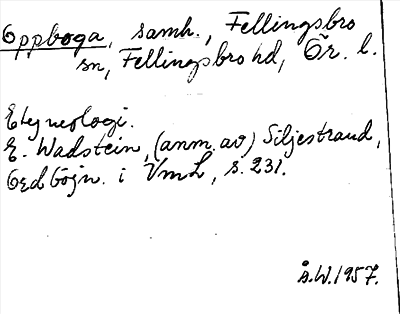 Oppboga, samh., Fellingsbro
sn, Fellingsbro hd, Ör. l.
Etymologi.
E. Wadstein, (anm. av) Siljestrand,
Ordböjn. i VmL, s. 231.
Å.W. 1957.